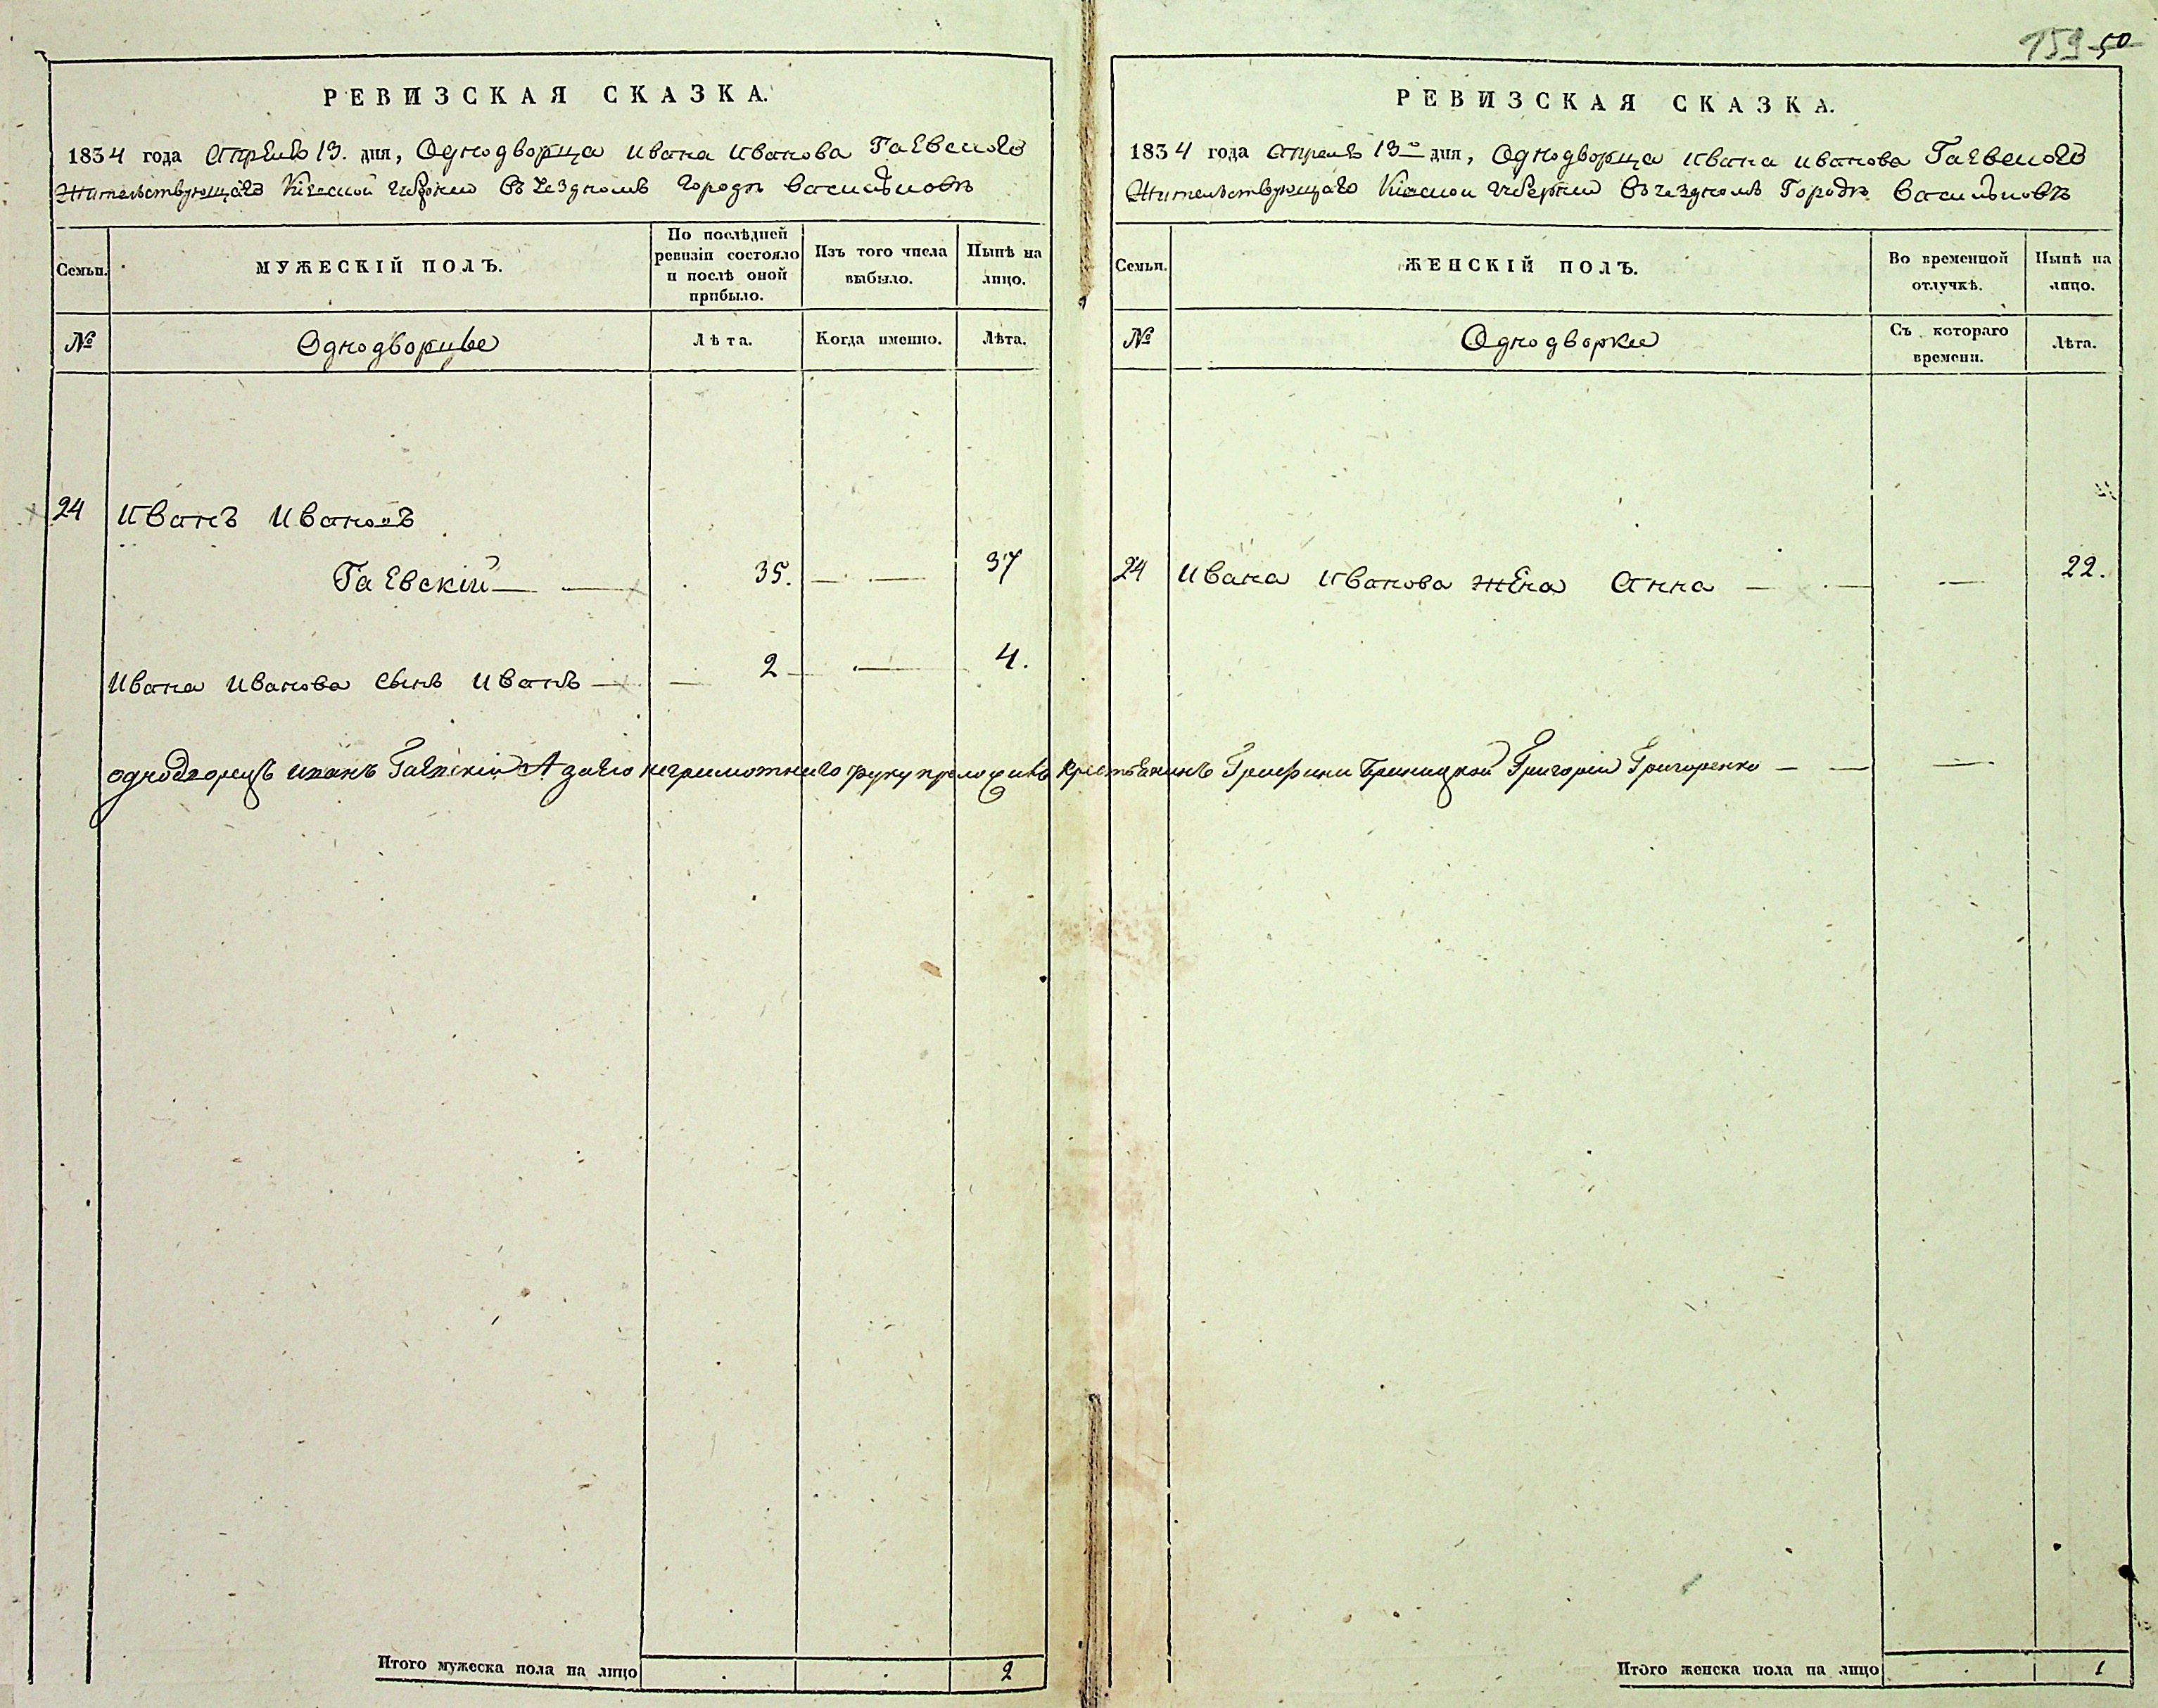 159 50
РЕВИЗСКАЯ СКАЗКА.
1834 года Апреля 13. дня, Однодворца Ивана Иванова Гаевского
Жительствующаго Кіевской Губерніи въ уездномъ городѣ Василькове
Семьи.
МУЖЕСКІЙ ПОЛЪ.
По послѣдней ревизіи состояло и послѣ оной прибыло.
Изъ того числа выбыло.
Нынѣ на лицо.
№
Однодворцы
Лѣта.
Когда именно.
Лѣта.
24 Иванъ Ивановъ
Гаевскій — — 35. — — 37
Ивана Иванова сынъ Иванъ — — 2 — — 4.
однодворецъ Иванъ Гаевскій А за его неграмотного руку приложилъ крестьянинъ Графини Браницкой Григорій Григоренко — — —
Итого мужеска пола на лицо 2
РЕВИЗСКАЯ СКАЗКА.
1834 года Апреля 13го дня, Однодворца Ивана Иванова Гаевского
Жительствующаго Кіевской Губерніи въ уездномъ Городѣ Василькове
Семьи.
ЖЕНСКІЙ ПОЛЪ.
Во временной отлучкѣ.
Нынѣ на лицо.
№
Однодворки
Съ котораго времени.
Лѣта.
24 Ивана Иванова жена Анна — — — 22.
Итого женска пола на лицо 1